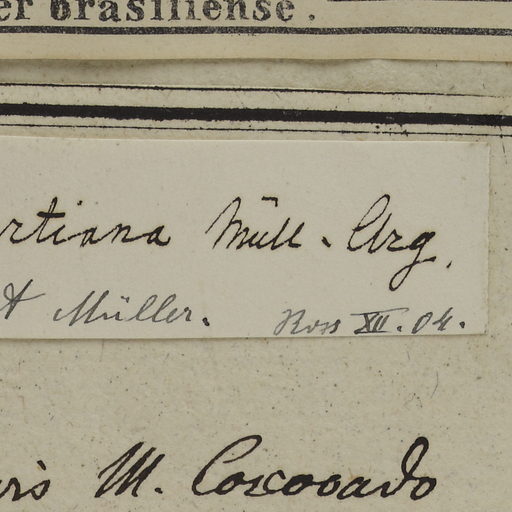 er brasiliense.
rtiana Müll. Arg.
t Müller. Ross XII. 04.
ris M. Corcovado